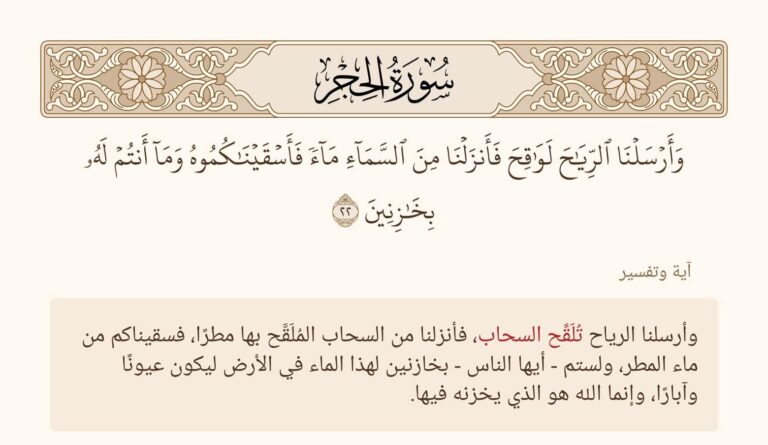 سُورَةُ الحِجْرِ
وَأَرْسَلْنَا ٱلرِّيَـٰحَ لَوَٰقِحَ فَأَنزَلْنَا مِنَ ٱلسَّمَآءِ مَآءً فَأَسْقَيْنَـٰكُمُوهُ وَمَآ أَنتُمْ لَهُۥ
بِخَـٰزِنِينَ ٢٢
آية وتفسير
وأرسلنا الرياح تُلَقِّح السحاب، فأنزلنا من السحاب المُلَقَّح بها مطرًا، فسقيناكم من
ماء المطر، ولستم - أيها الناس - بخازنين لهذا الماء في الأرض ليكون عيونًا
وآبارًا، وإنما الله هو الذي يخزنه فيها.